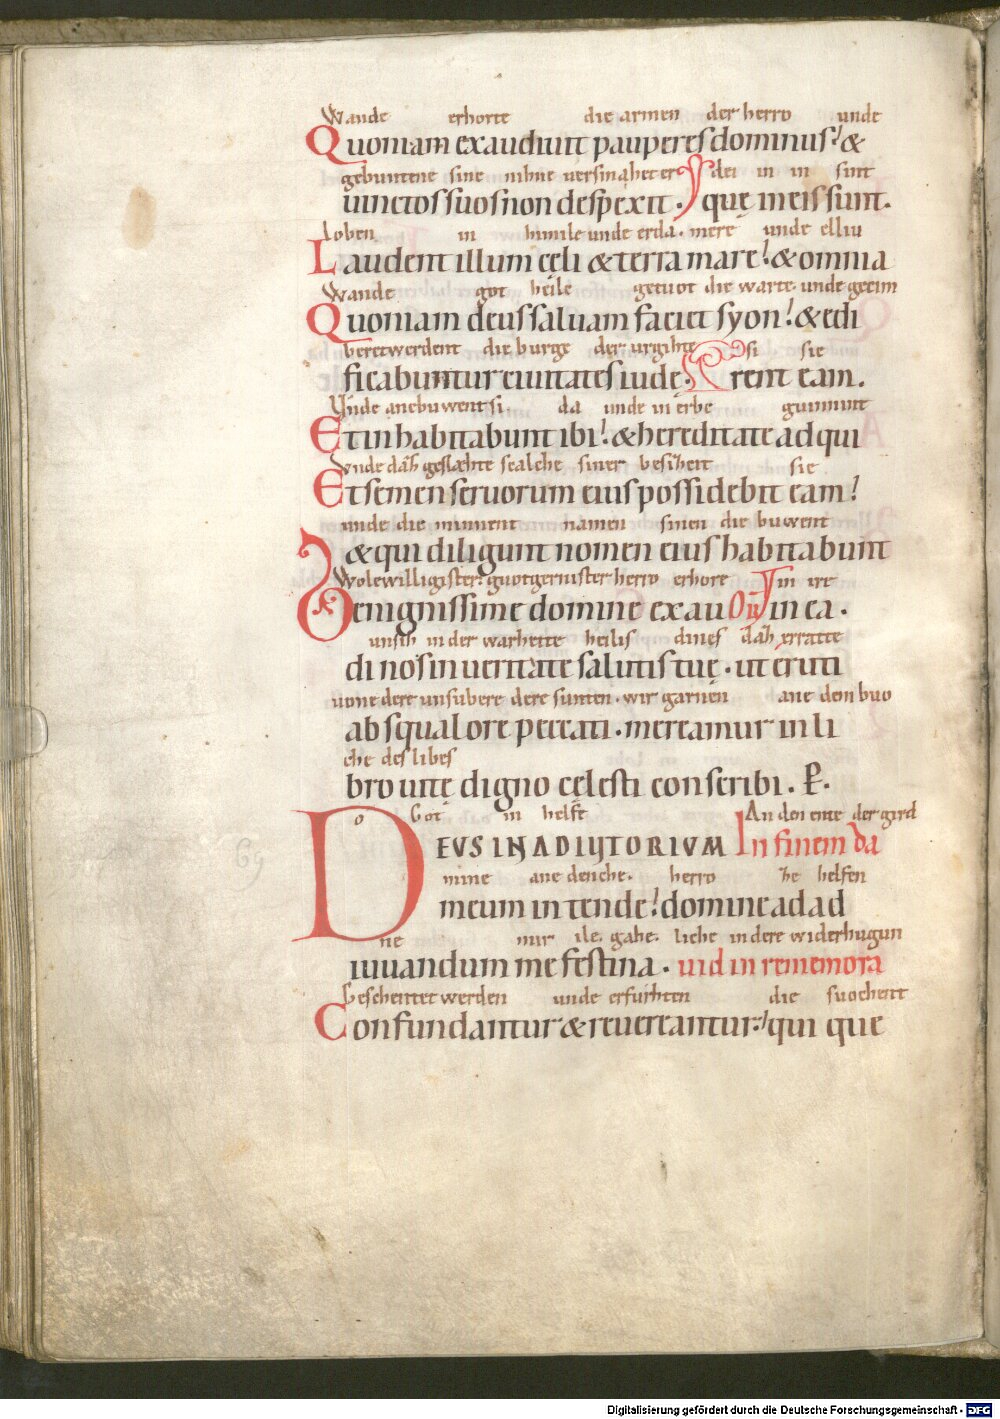 Wande erhorte die armen der herro unde
Quoniam exaudiuit pauperes dominus! &
gebuntene sine nihne uersmahet er dei in in sint
uinctos suos non despexit. que in eis sunt.
Loben in himile unde erda. mere unde elliu
Laudent illum celi & terra mare! & omnia
Wande got heile getuot die warte. unde gecim
Quoniam deus saluam faciet syon! & edi
beretwerdent die burge der urgihte si sie
ficabuntur ciuitates iude. rent eam.
Unde anebuwent si da unde in erbe guinnint
Et inhabitabunt ibi! & hereditate adqui
Unde daz geslæhte scalche siner besizzent sie
Et semen seruorum eius possidebit eam!
unde die minnent namen sinen die buwent
& qui diligunt nomen eius habitabunt
Wolewilligister. guotgernister herro erhore in ire
Benignissime domine exau or in ea.
unsih in der warheite heilis dines daz erratte
di nos in ueritate salutis tue. ut eruti
uone dere unsubere dere sunten. wir garnen ane dem buo
ab squalore peccati. mereamur in li
che des libes
bro uite digno celesti conscribi. P.
o Got in helfe An den ente der gird
DEUS IN ADIUTORIUM In finem da
mine ane denche. herro ze helfen
meum intende! domine ad ad
ne mir ile. gahe. liche in dere widerhugun
iuuandum me festina. uid in rememora
Gescheitet werden unde erfurhten die suochent
Confundantur & reuereantur! qui que
69
Digitalisierung gefördert durch die Deutsche Forschungsgemeinschaft - DFG